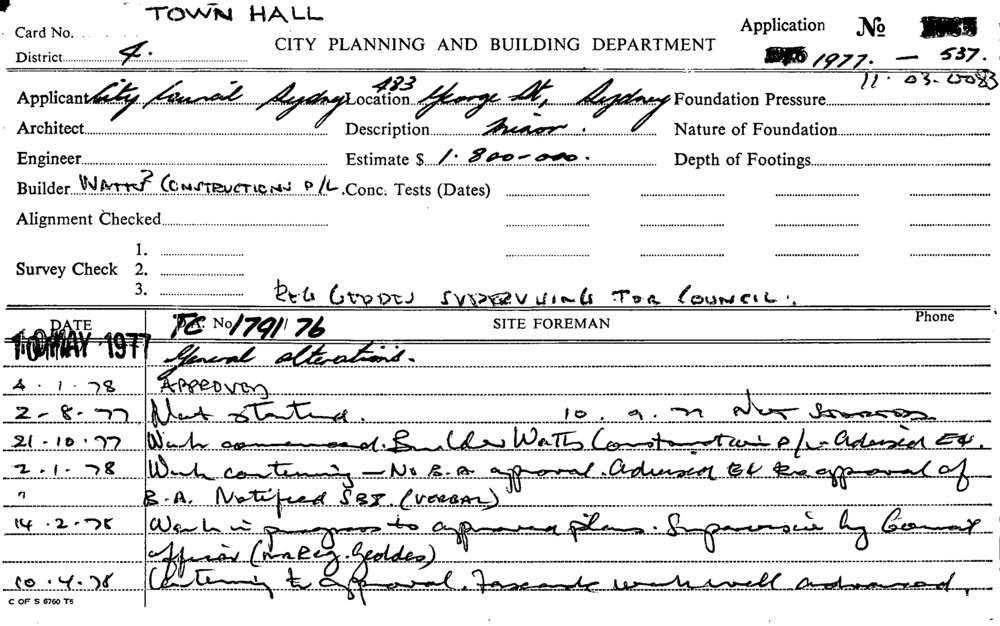 TOWN HALL
Card No.
Application No
District 4.
CITY PLANNING AND BUILDING DEPARTMENT
1977. - 537.
11.03.0083
Applicant City Council Sydney Location 483 George St, Sydney Foundation Pressure
Architect Description Minor. Nature of Foundation
Engineer Estimate $ 1.800-000. Depth of Footings
Builder WATTS CONSTRUCTIONS P/L. Conc. Tests (Dates)
Alignment Checked
1.
Survey Check 2.
3. REG GEDDES SUPERVISING FOR COUNCIL.
DATE No 1791/76 SITE FOREMAN Phone
MAY 1977 General alterations.
4.1.78 APPROVED
2-8-77 Not started. 10.9.77 Not STARTED
21.10.77 Work commenced. Builder Watts Constructions P/L - Advised
2.1.78 Work continuing - No B.A. approval. Advised approval of
" B.A. Notified SBI. (VERBAL)
14.2.78 Work in progress to approved plans. Supervision by Council
officer (Mr Reg. Geddes)
10.4.78 Continuing to approval. Facade work well advanced.
C OF S 6760 T5